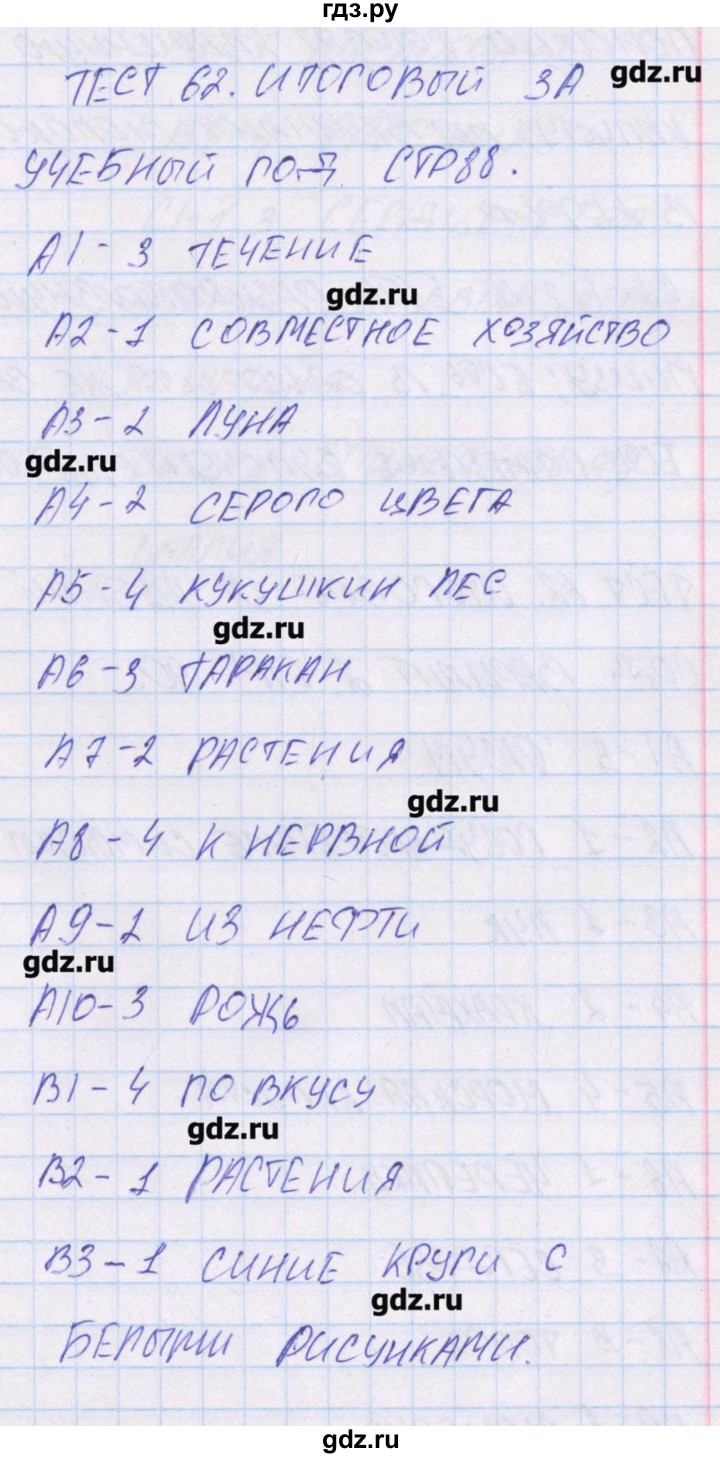 гдз.ру
ТЕСТ 62. ИТОГОВЫЙ ЗА
gdz.ru
УЧЕБНЫЙ ГОД. СТР 88.
А1 - 3 ТЕЧЕНИЕ
gdz.ru
А2 - 1 СОВМЕСТНОЕ ХОЗЯЙСТВО
А3 - 2 ЛУНА
gdz.ru
А4 - 2 СЕРОГО ЦВЕТА
А5 - 4 КУКУШКИН ЛЕС
gdz.ru
А6 - 3 ТАРАКАН
А7 - 2 РАСТЕНИЯ
gdz.ru
А8 - 4 К НЕРВНОЙ
А9 - 2 ИЗ НЕФТИ
gdz.ru
А10 - 3 РОЖЬ
В1 - 4 ПО ВКУСУ
gdz.ru
В2 - 1 РАСТЕНИЯ
В3 - 1 СИНИЕ КРУГИ С
gdz.ru
БЕЛЫМИ РИСУНКАМИ.
gdz.ru